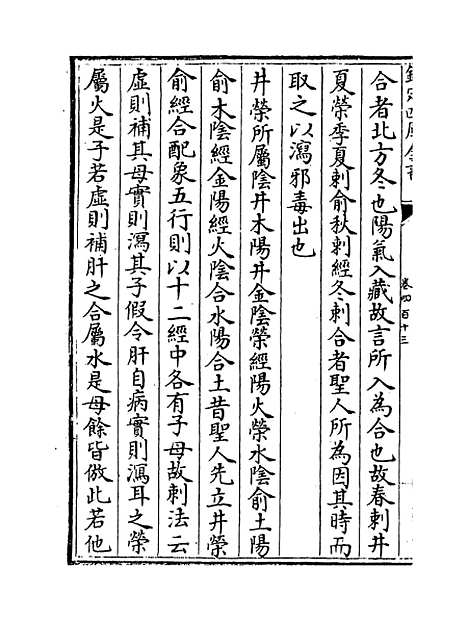 欽定四庫全書
卷四百十三
合者北方冬也陽氣入藏故言所入為合也故春刺井
夏榮季夏刺俞秋刺經冬刺合者聖人所為因其時而
取之以瀉邪毒出也
井榮所屬陰井木陽井金陰榮經陽火榮水陰俞土陽
俞木陰經金陽經火陰合水陽合土昔聖人先立井榮
俞經合配象五行則以十二經中各有子母故刺法云
虛則補其母實則瀉其子假令肝自病實則瀉耳之榮
屬火是子若虛則補肝之合屬水是母餘皆倣此若他